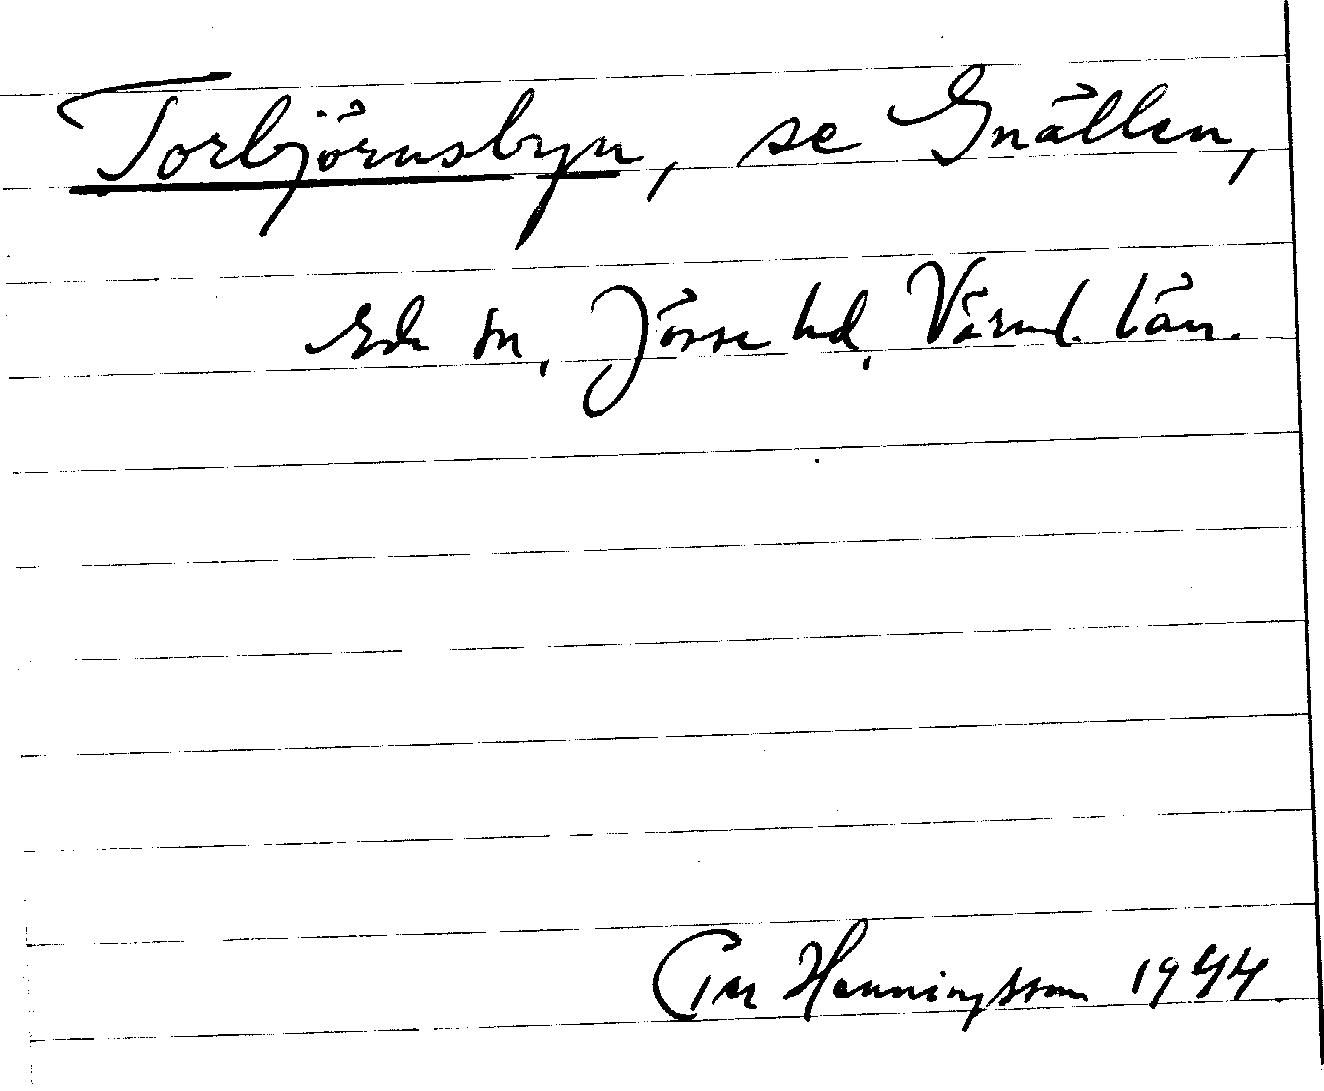 Torbjörnsbyn, se Gnällen,
Eda sn, Jösse hd, Värml. län.
Per Henningsson 1944